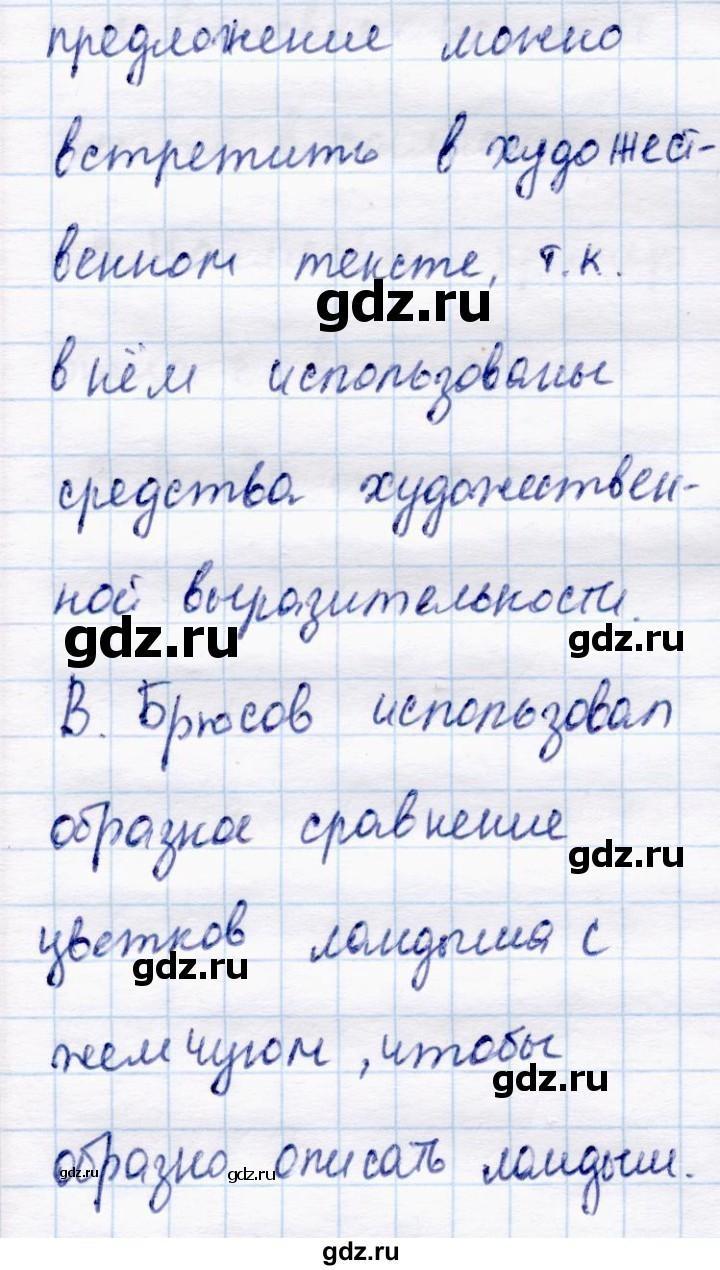 предложение можно
встретить в художест-
венном тексте, т.к.
gdz.ru
в нём использованы
средства художествен-
ной выразительности.
gdz.ru
gdz.ru
В. Брюсов использовал
образное сравнение
gdz.ru
цветков ландыша с
gdz.ru
жемчугом, чтобы
gdz.ru
образно описать ландыш.
gdz.ru
gdz.ru
gdz.ru